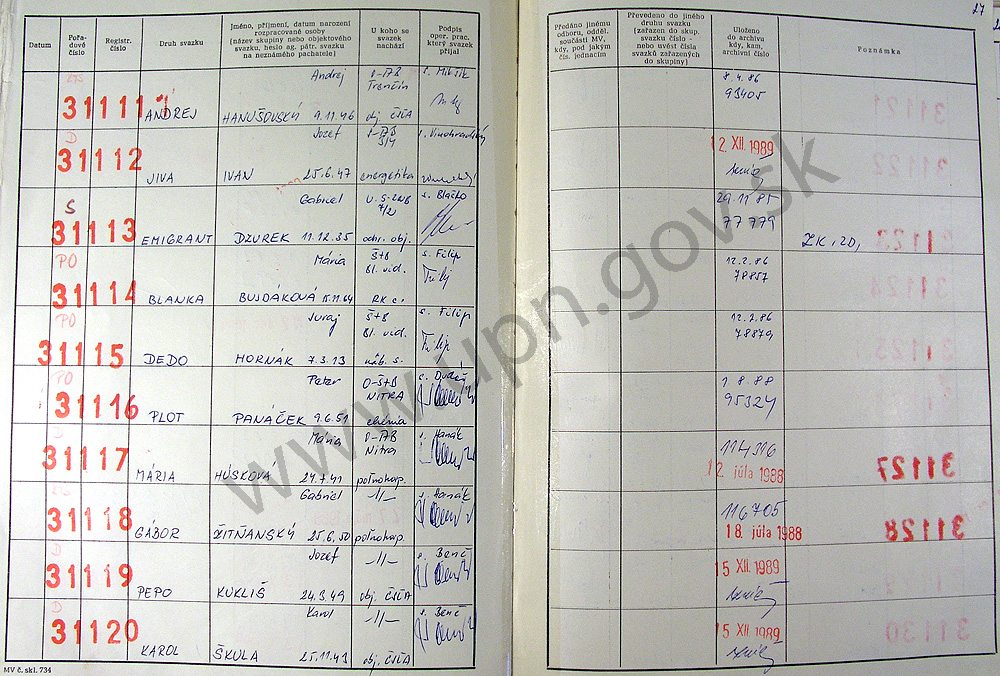 Datum
Pořadové číslo
Registr. číslo
Druh svazku
Jméno, příjmení, datum narození rozpracované osoby (název skupiny nebo objektového svazku, heslo ag. pátr. svazku na neznámého pachatele)
U koho se svazek nachází
Podpis oper. prac. který svazek přijal
Předáno jinému odboru, odděl. součásti MV, kdy, pod jakým čís. jednacím
Převedeno do jiného druhu svazku (zařazen do skup. svazku číslo - nebo uvést čísla svazků zařazených do skupiny)
Uloženo do archivu kdy, kam, archivní číslo
Poznámka
27
31111 ANDREJ HANUŠOVSKÝ Andrej 9.11.46 Trenčín obj. ČSĽA
8.4.86
93405
D 31112 JIVA IVAN Jozef 25.6.47 energetika
12 XII. 1989
S 31113 EMIGRANT DZUREK Gabriel 11.12.35 ochr. obj. s. Blaško
29.11.85
77779
ZK, 2D,
PO 31114 BLANKA BUJDÁKOVÁ Mária 15.11.64 ŠtB Bl. vid. RK c. s. Filip
12.2.86
78857
PO 31115 DEDO HORNÁK Juraj 7.3.13 ŠtB Bl. vid. náb. s. s. Filip
12.2.86
78879
PO 31116 PLOT PANÁČEK Peter 9.6.51 O-ŠtB NITRA
1.8.88
95324
D 31117 MÁRIA HÚSKOVÁ Mária 24.7.41 Nitra poľnohosp. s. Hanák
114316
12. júla 1988
31118 GÁBOR ŽITŇANSKÝ Gabriel 25.6.50 -//- poľnohosp. s. Hanák
116705
18 júla 1988
D 31119 PEPO KUKLIŠ Jozef 24.3.49 -//- obj. ČSĽA s. Benč
15 XII. 1989
D 31120 KAROL ŠKULA Karol 25.11.49 -//- obj. ČSĽA s. Benč
15 XII. 1989
MV č. skl. 734
www.upn.gov.sk